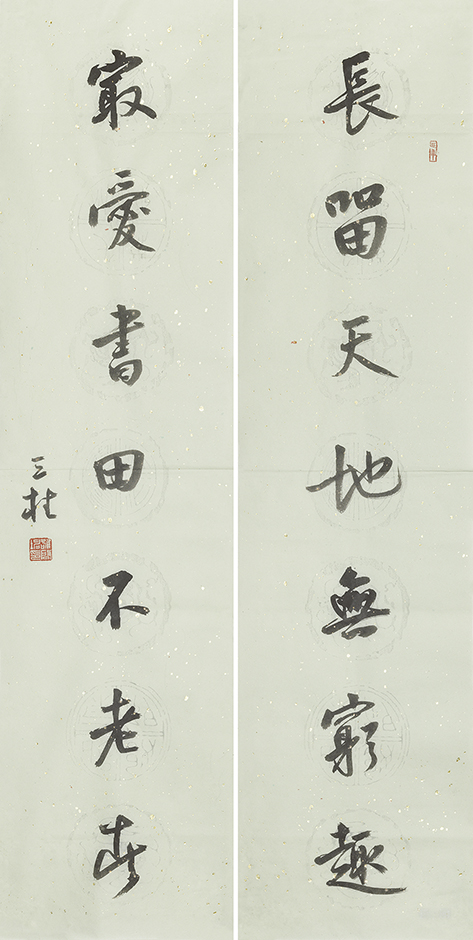 長留天地無窮趣
最愛書田不老春
三柱